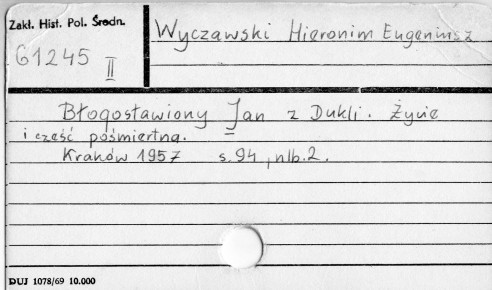 Zakł. Hist. Pol. Średn.
61245 II
Wyczawski Hieronim Eugeniusz
Błogosławiony Jan z Dukli. Życie
i cześć pośmiertna.
Kraków 1957 s. 94, nlb. 2.
DUJ 1078/69 10.000